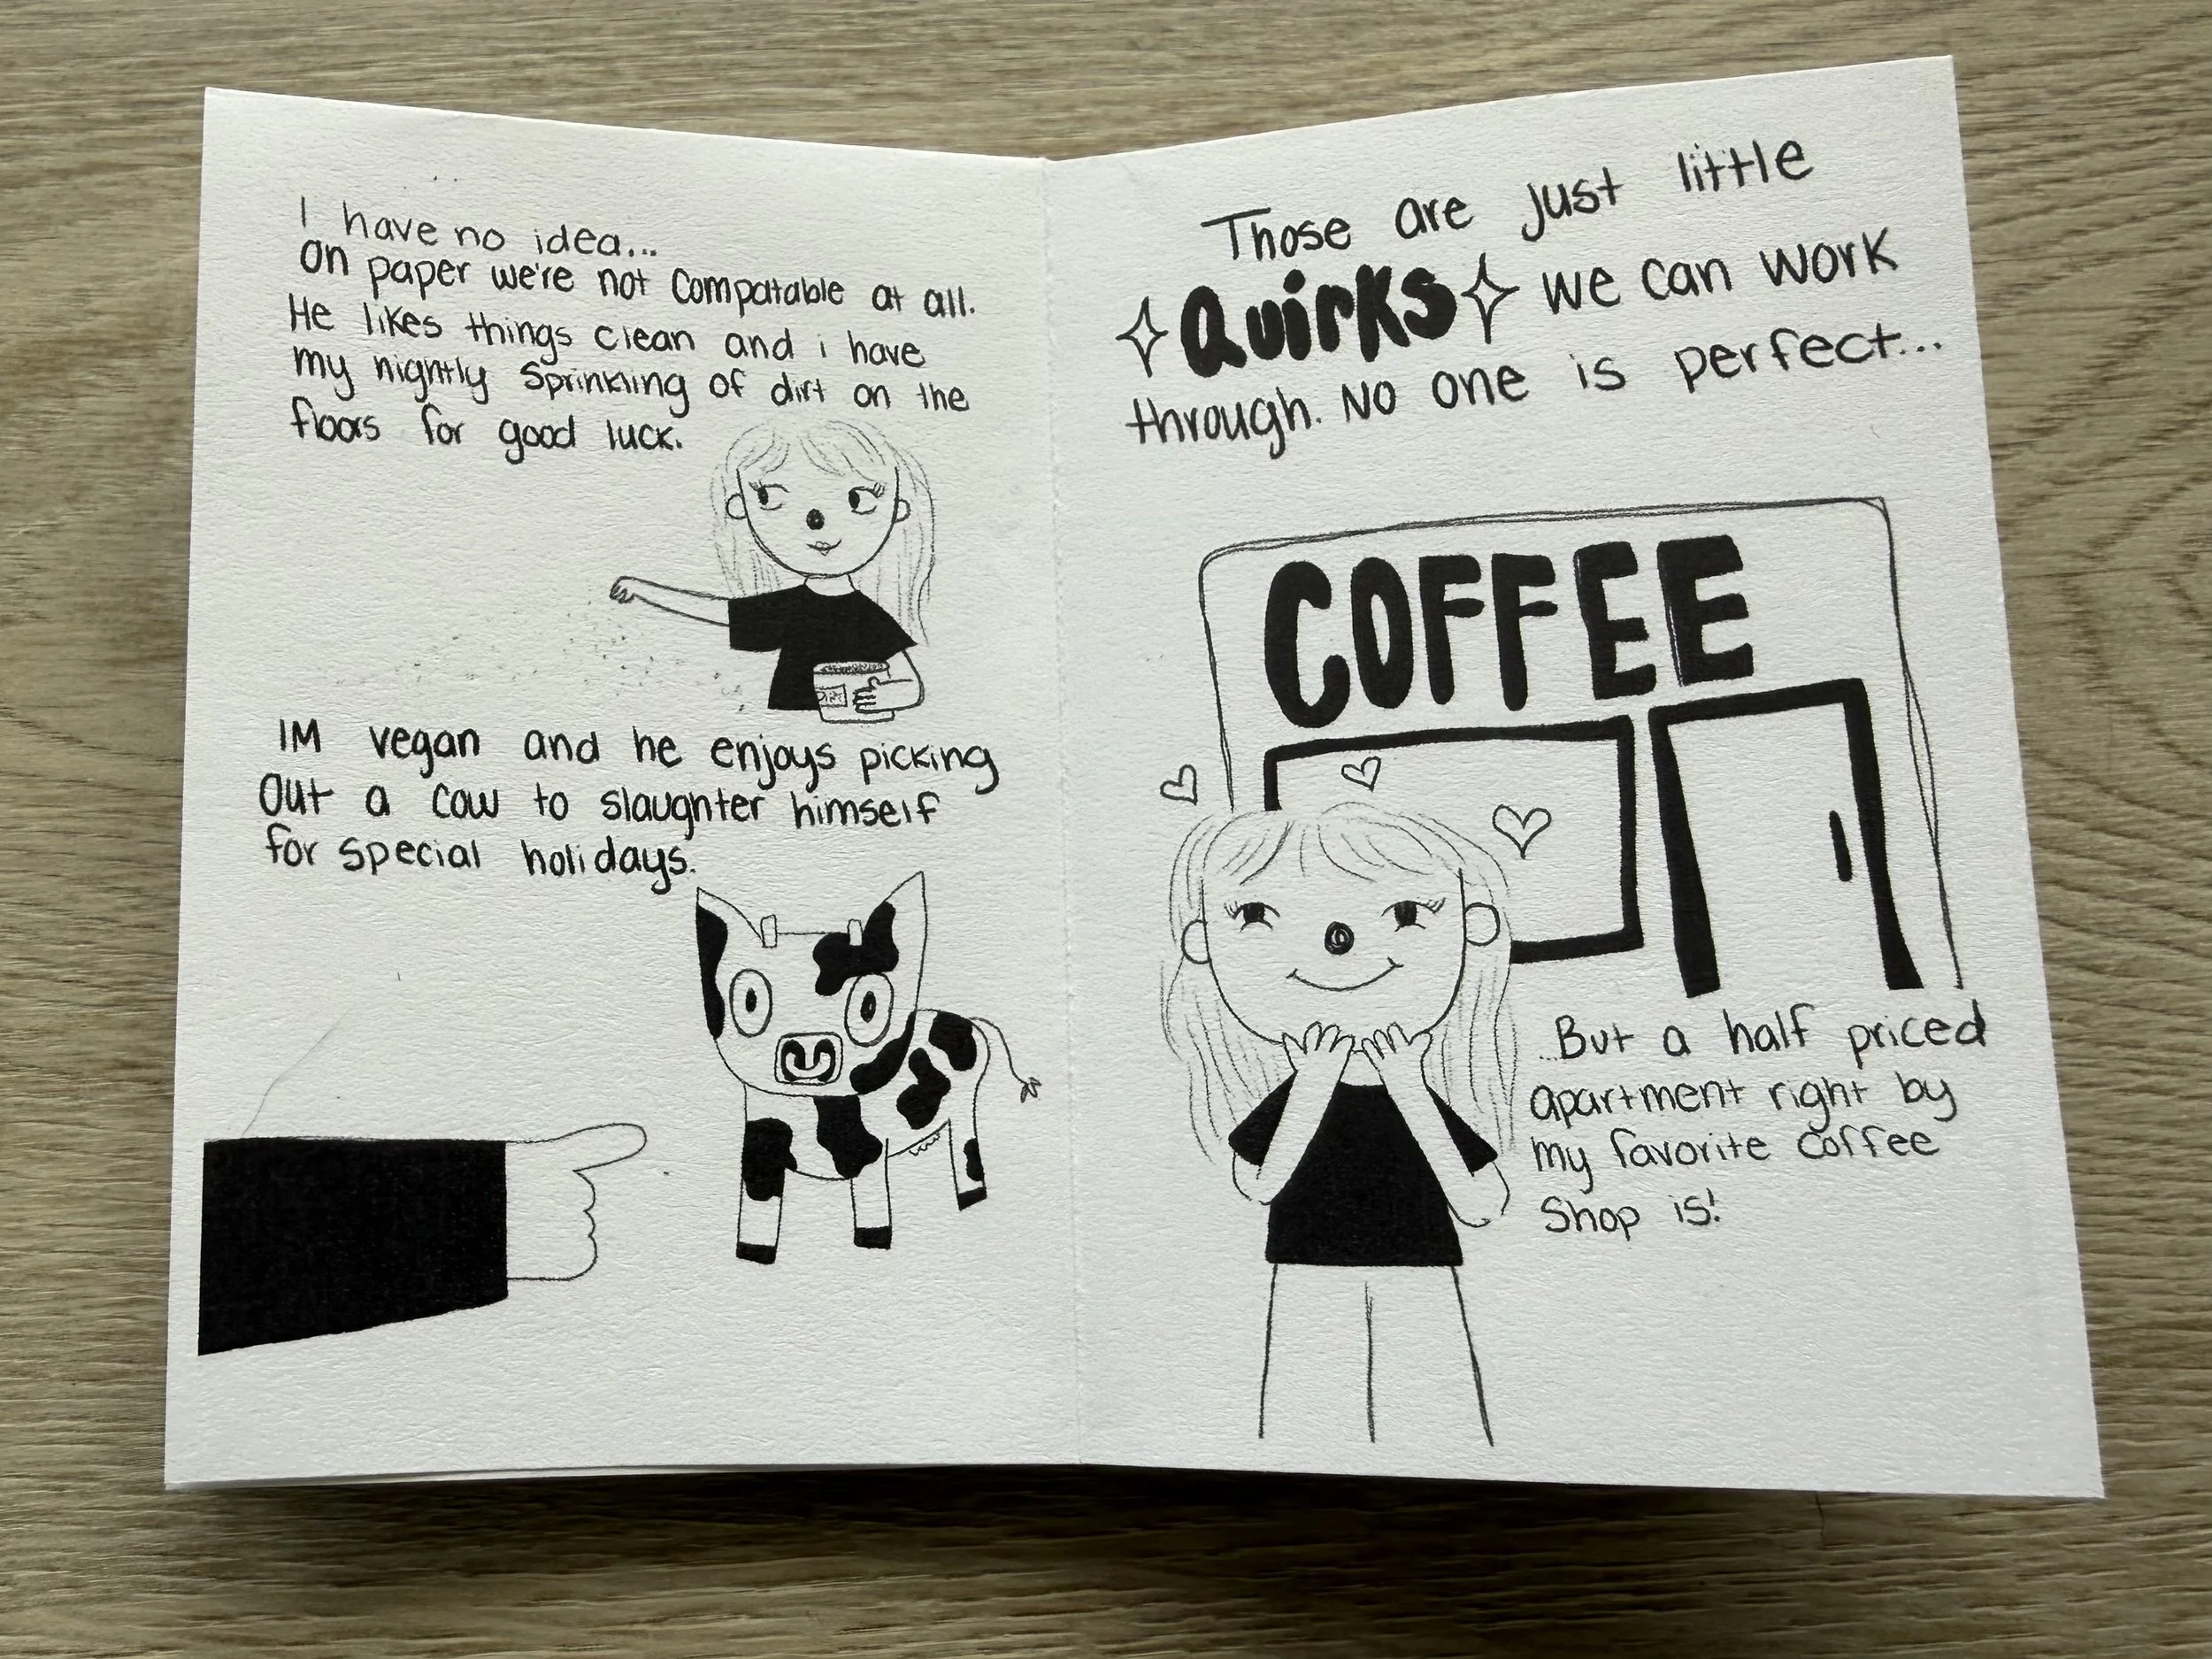 I have no idea...
on paper we're not compatable at all.
He likes things clean and i have
my nightly sprinkling of dirt on the
floors for good luck.
IM vegan and he enjoys picking
out a cow to slaughter himself
for special holidays.
Those are just little
Quirks we can work
through. No one is perfect...
COFFEE
...But a half priced
apartment right by
my favorite coffee
shop is!